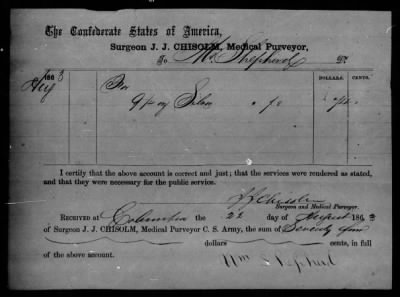 The Confederate States of America,
Surgeon J. J. CHISOLM, Medical Purveyor,
To Shepherd Dr.
1863 DOLLARS. CENTS.
Aug For
I certify that the above account is correct and just; that the services were rendered as stated,
and that they were necessary for the public service.
J J Chisolm
Surgeon and Medical Purveyor.
RECEIVED AT Columbia the 22 day of August 1863
of Surgeon J. J. CHISOLM, Medical Purveyor C. S. Army, the sum of Seventy four
dollars cents, in full
of the above account.
Wm Shepherd